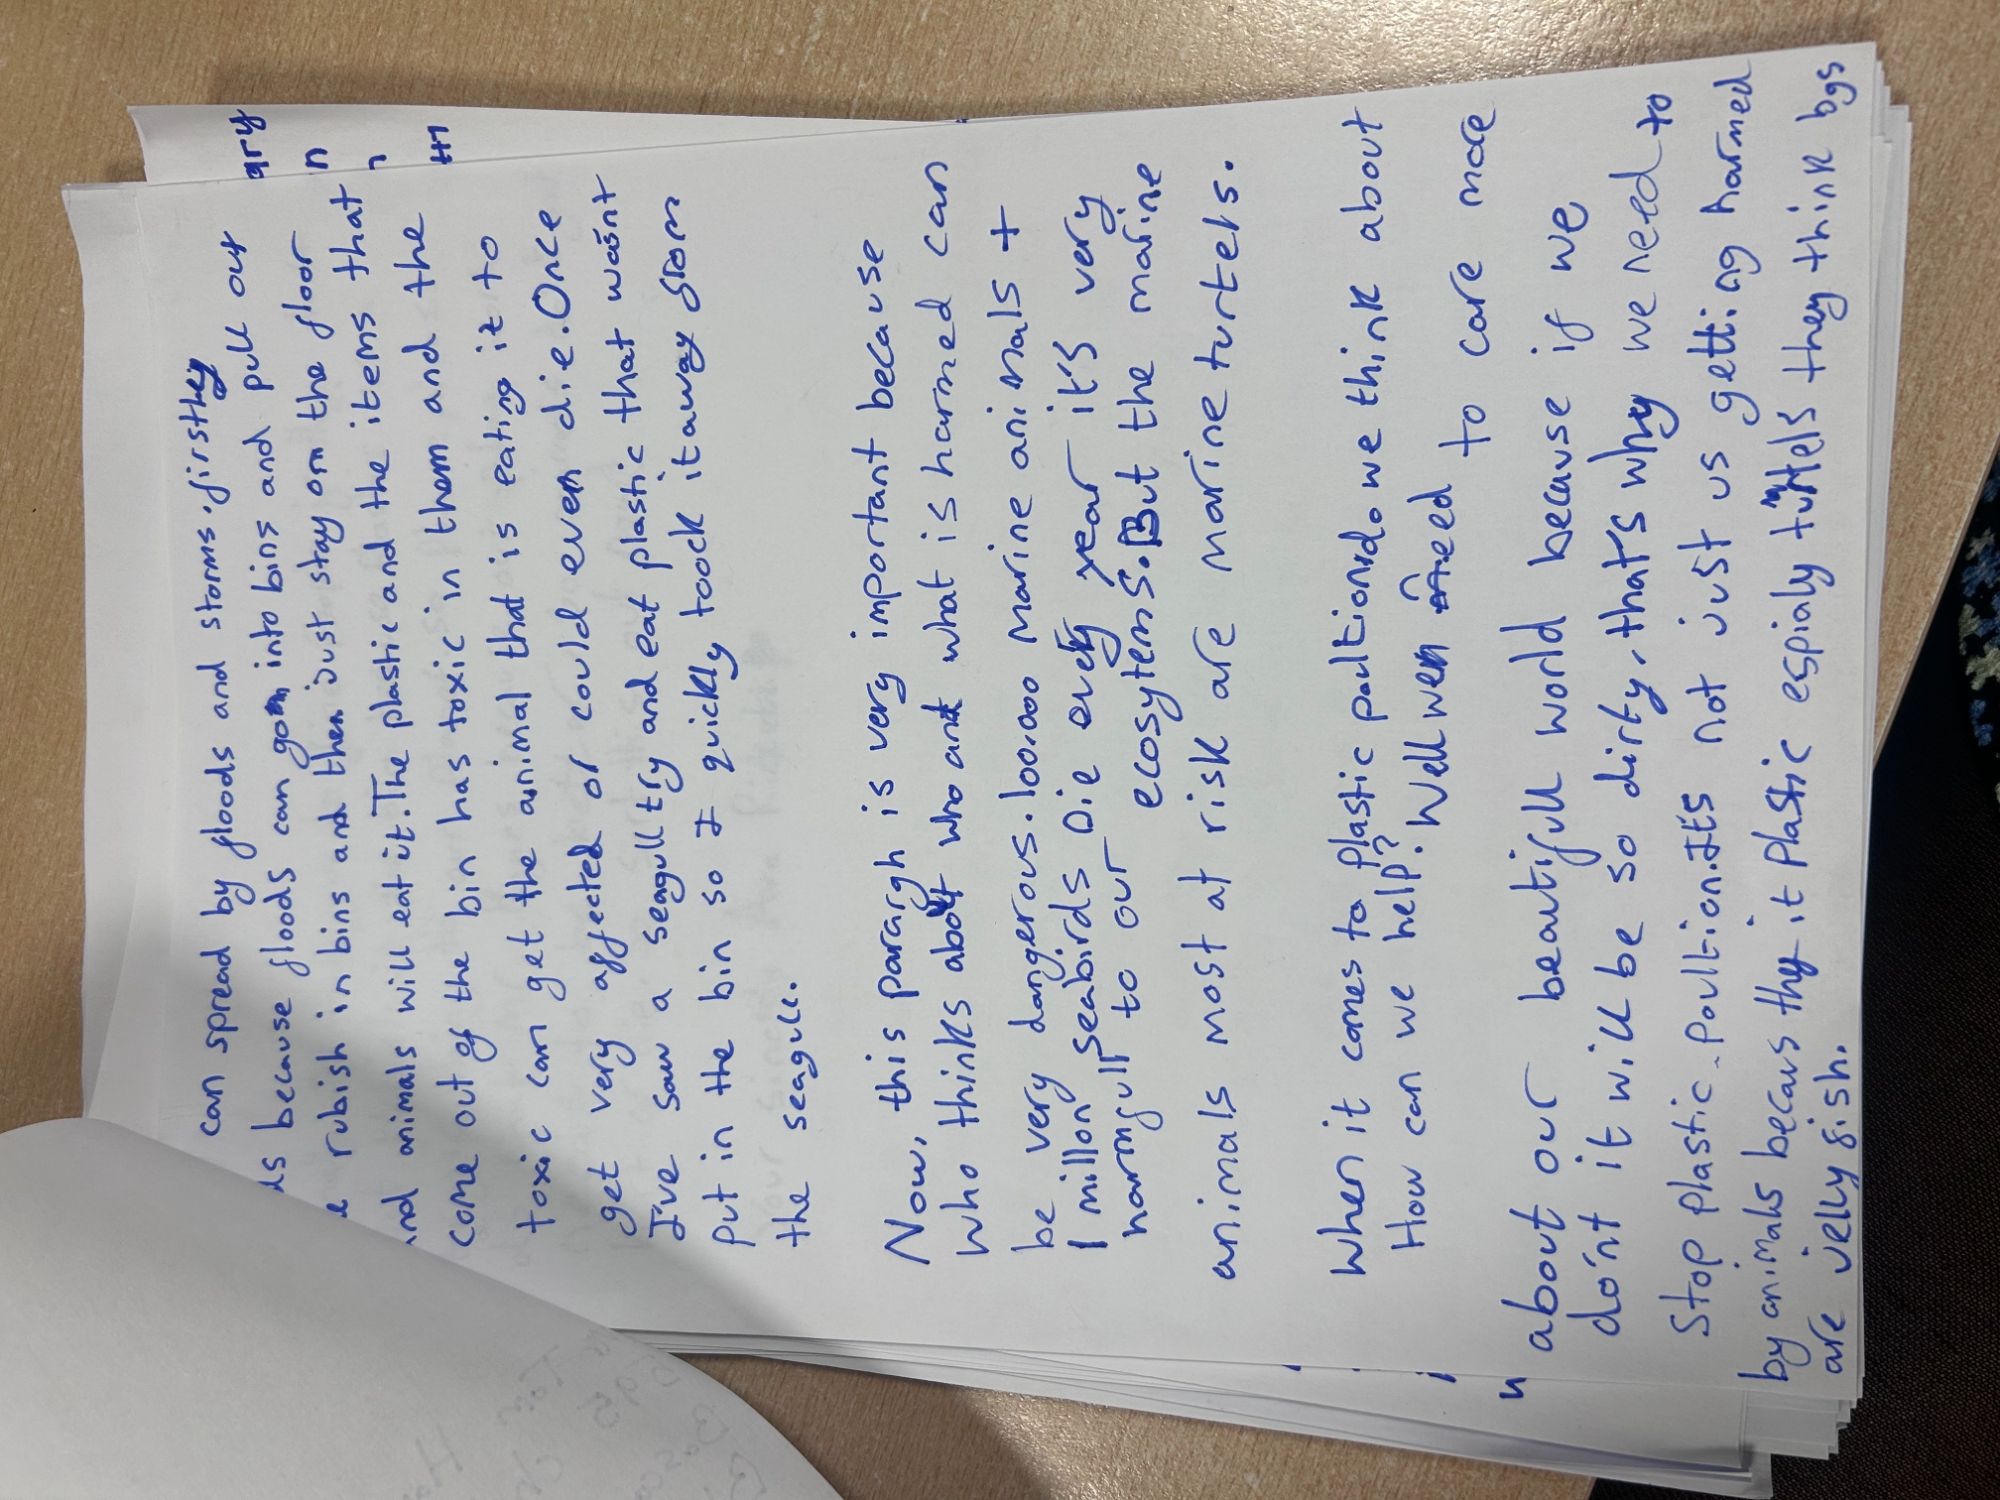 can spread by floods and storms. firsthey
ds because floods can go into bins and pull out
e rubish in bins and then just stay on the floor
and animals will eat it. The plastic and the items that
come out of the bin has toxic in them and the
toxic can get the animal that is eating it to
get very affected or could even die. Once
I've saw a seagull try and eat plastic that wasn't
put in the bin so I quickly toock it away from
the seagull.
Now, this pargrgh is very important because
who thinks about who and what is harmed can
be very dangerous. 100.000 marine animals +
1 millon seabirds Die every year it's very
harmgull to our ecosytems. But the marine
animals most at risk are marine turtels.
When it comes to plastic poultion do we think about
How can we help? Well we need to care more
about our beautifull world because if we
do'nt it will be so dirty. that's why we need to
Stop Plastic. Poultion. It's not just us getting harmed
by animals becaus they it Plastic espialy turtels they think bgs
are jelly fish.